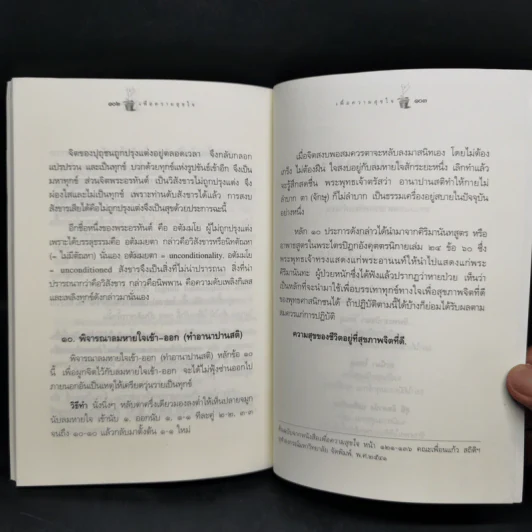 ๑๐๒ เพื่อความสุขใจ
จิตของปุถุชนถูกปรุงแต่งอยู่ตลอดเวลา จึงกลับกลอก
แปรปรวน และเป็นทุกข์ บวกด้วยทุกข์แห่งรูปขันธ์เข้าอีก จึงเป็น
มหาทุกข์ ส่วนจิตพระอรหันต์ เป็นวิสังขารไม่ถูกปรุงแต่ง จึง
ผ่องใสและไม่เป็นทุกข์ เพราะท่านดับสังขารได้แล้ว การสงบ
สังขารเสียได้คือไม่ถูกปรุงแต่งจึงเป็นสุขด้วยประการฉะนี้
อีกชื่อหนึ่งของพระอรหันต์ คือ อตัมมโย ผู้ไม่ถูกปรุงแต่ง
เพราะได้บรรลุธรรมคือ อตัมมยตา กล่าวคือวิสังขารหรือนิททัณหา
(= ไม่มีตัณหา) นั่นเอง อตัมมยตา = unconditionality. อตัมมโย
= unconditioned สังขารจึงเป็นสิ่งที่ไม่น่าปรารถนา สิ่งที่น่า
ปรารถนากว่าคือวิสังขาร กล่าวคือนิพพาน คือความดับเพลิงกิเลส
และเพลิงทุกข์ดังกล่าวมานั่นเอง
๑๐. พิจารณาลมหายใจเข้า-ออก (ทำอานาปานสติ)
พิจารณาลมหายใจเข้า-ออก (ทำอานาปานสติ) หลักข้อ ๑๐
นี้ เพื่อผูกจิตไว้กับลมหายใจเข้า-ออก จะได้ไม่ฟุ้งซ่านออกไป
ภายนอกอันเป็นเหตุให้เครียดวุ่นวายเป็นทุกข์
วิธีทำ นั่งนิ่งๆ หลับตาครึ่งเดียวมองลงต่ำให้เห็นปลายจมูก
นับลมหายใจ เข้านับ ๑. ออกนับ ๑. ๑-๑ ทีละคู่ ๒-๒. ๓-๓
จนถึง ๑๐-๑๐ แล้วกลับมาตั้งต้น ๑-๑ ใหม่
เพื่อความสุขใจ ๑๐๓
เมื่อจิตสงบพอสมควรตาจะหลับลงมาสนิทเอง โดยไม่ต้อง
เกร็ง ไม่ต้องฝืน ใจสงบอยู่กับลมหายใจสักระยะหนึ่ง เลิกทำแล้ว
จะรู้สึกสดชื่น พระพุทธเจ้าตรัสว่า อานาปานสติทำให้กายไม่
ลำบาก ตา (จักษุ) ก็ไม่ลำบาก เป็นธรรมเครื่องอยู่สบายในปัจจุบัน
อย่างหนึ่ง
หลัก ๑๐ ประการดังกล่าวได้นำมาจากคิริมานันทสูตร หรือ
อาพาธสูตรในพระไตรปิฎกอังคุตตรนิกายเล่ม ๒๔ ข้อ ๖๐ ซึ่ง
พระพุทธเจ้าทรงแสดงแก่พระอานนท์ให้นำไปแสดงแก่พระ
คิริมานันทะ ผู้ป่วยหนักซึ่งได้ฟังแล้วปรากฏว่าหายป่วย เห็นว่า
เป็นหลักที่จะนำมาใช้เพื่อบรรเทาทุกข์ทางใจเพื่อสุขภาพจิตที่ดี
ของพุทธศาสนิกชนได้ ถ้าปฏิบัติตามนี้ได้บ้างก็ย่อมได้รับผลตาม
สมควรแก่การปฏิบัติ
ความสุขของชีวิตอยู่ที่สุขภาพจิตที่ดี.
ต้นฉบับจากหนังสือเพื่อความสุขใจ หน้า ๑๒๑-๑๓๖ คณะเพื่อนแก้ว สถิติฯ
จุฬาลงกรณ์มหาวิทยาลัย จัดพิมพ์. พ.ศ.๒๕๔๑